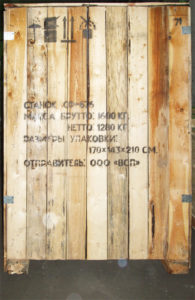 СТАНОК СФ-676
МАССА БРУТТО: 1600 КГ.
НЕТТО: 1280 КГ.
РАЗМЕРЫ УПАКОВКИ:
170×143×210 СМ.
ОТПРАВИТЕЛЬ: ООО «ВСП»